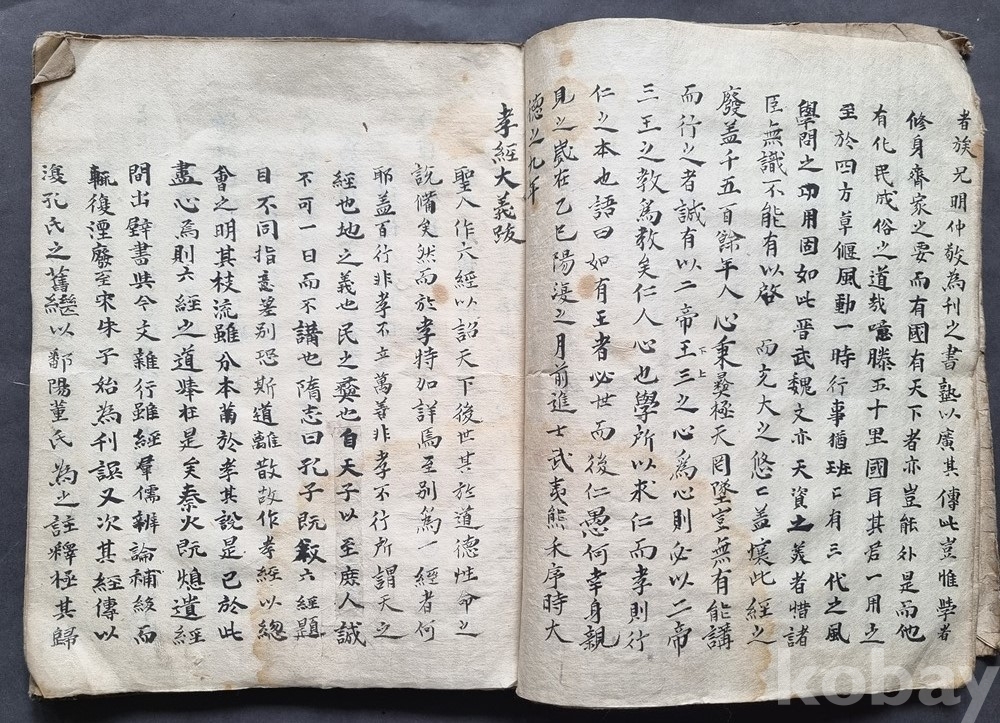 者族兄明仲敬為刊之書塾以廣其傳此豈惟學者
修身齊家之要而有國有天下者亦豈能外是而他
有化民成俗之道哉噫滕五十里國耳其君一用之
至於四方草偃風動一時行事猶班〻有三代之風
學問之功用固如此晉武魏文亦天資之美者惜諸
臣無識不能有以啓 而充大之悠〻蓋壤此經之
廢盖千五百餘年人心秉彝極天罔墜豈無有能講
而行之者誠有以二帝王三之心為心則必以二帝
三王之教為教矣仁人心也學所以求仁而孝則行
仁之本也語曰如有王者必世而後仁愚何幸身親
見之歲在乙巳陽復之月前進士武夷熊禾序時大
德之九年
孝經大義跋
聖人作六經以詔天下後世其於道德性命之
說備矣然而於孝特加詳焉至別為一經者何
耶盖百行非孝不立萬善非孝不行所謂天之
經也地之義也民之彝也自天子以至庶人誠
不可一日而不講也隋志曰孔子既叙六經題
目不同指意差別恐斯道離散故作孝經以總
會之明其枝流雖分本萠於孝其說是已於此
盡心焉則六經之道奉在是矣秦火既熄遺經
間出壁書與今文雜行雖經羣儒辨論補綴而
輒復湮廢至宋朱子始為刊誤又次其經傳以
復孔氏之舊繼以鄱陽董氏為之註釋極其歸
kobay